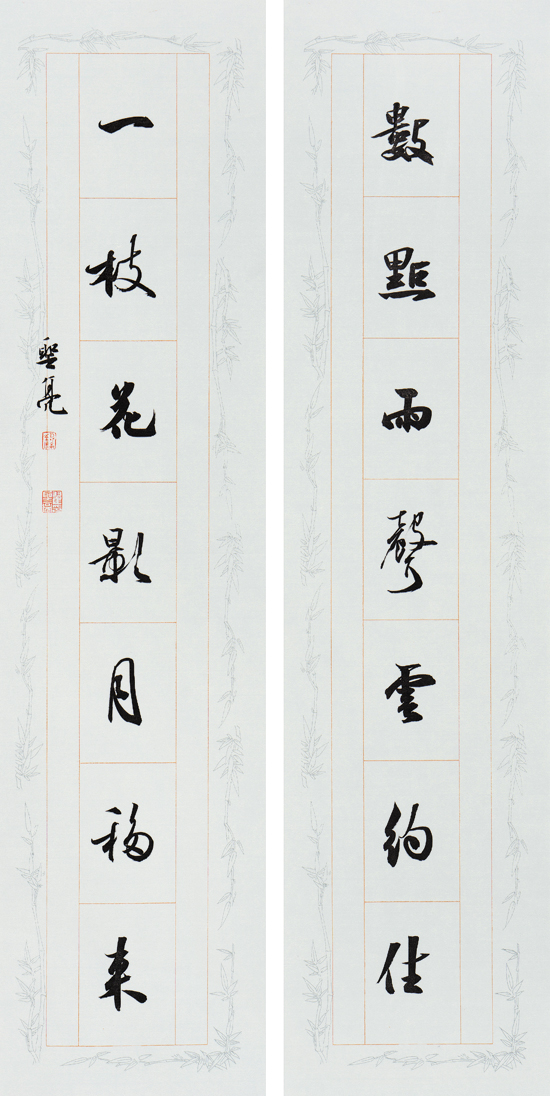 數點雨聲雲約住
一枝花影月移來
聖亮